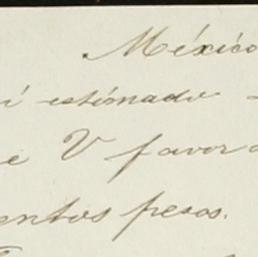 México
í estimado
e V favor
entos pesos.